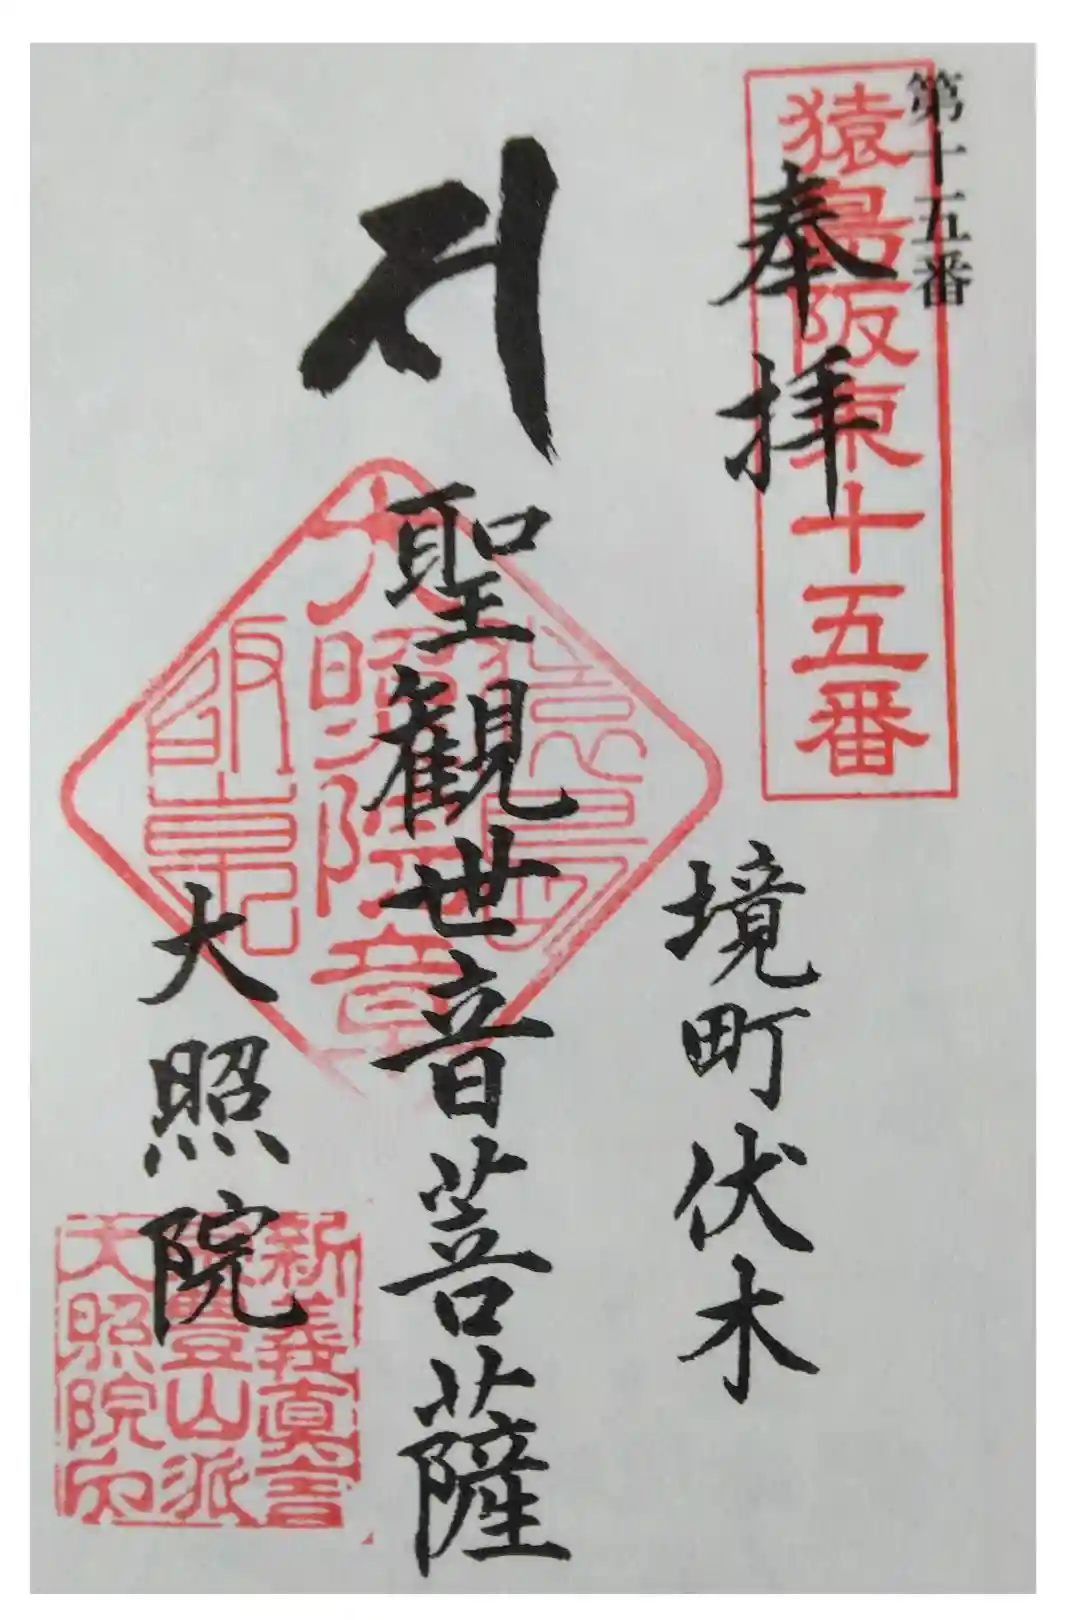 第十五番
猿島阪東十五番
奉拝
境町伏木
聖観世音菩薩
大照院章
大照院
新義真言
宗豊山派
大照院印